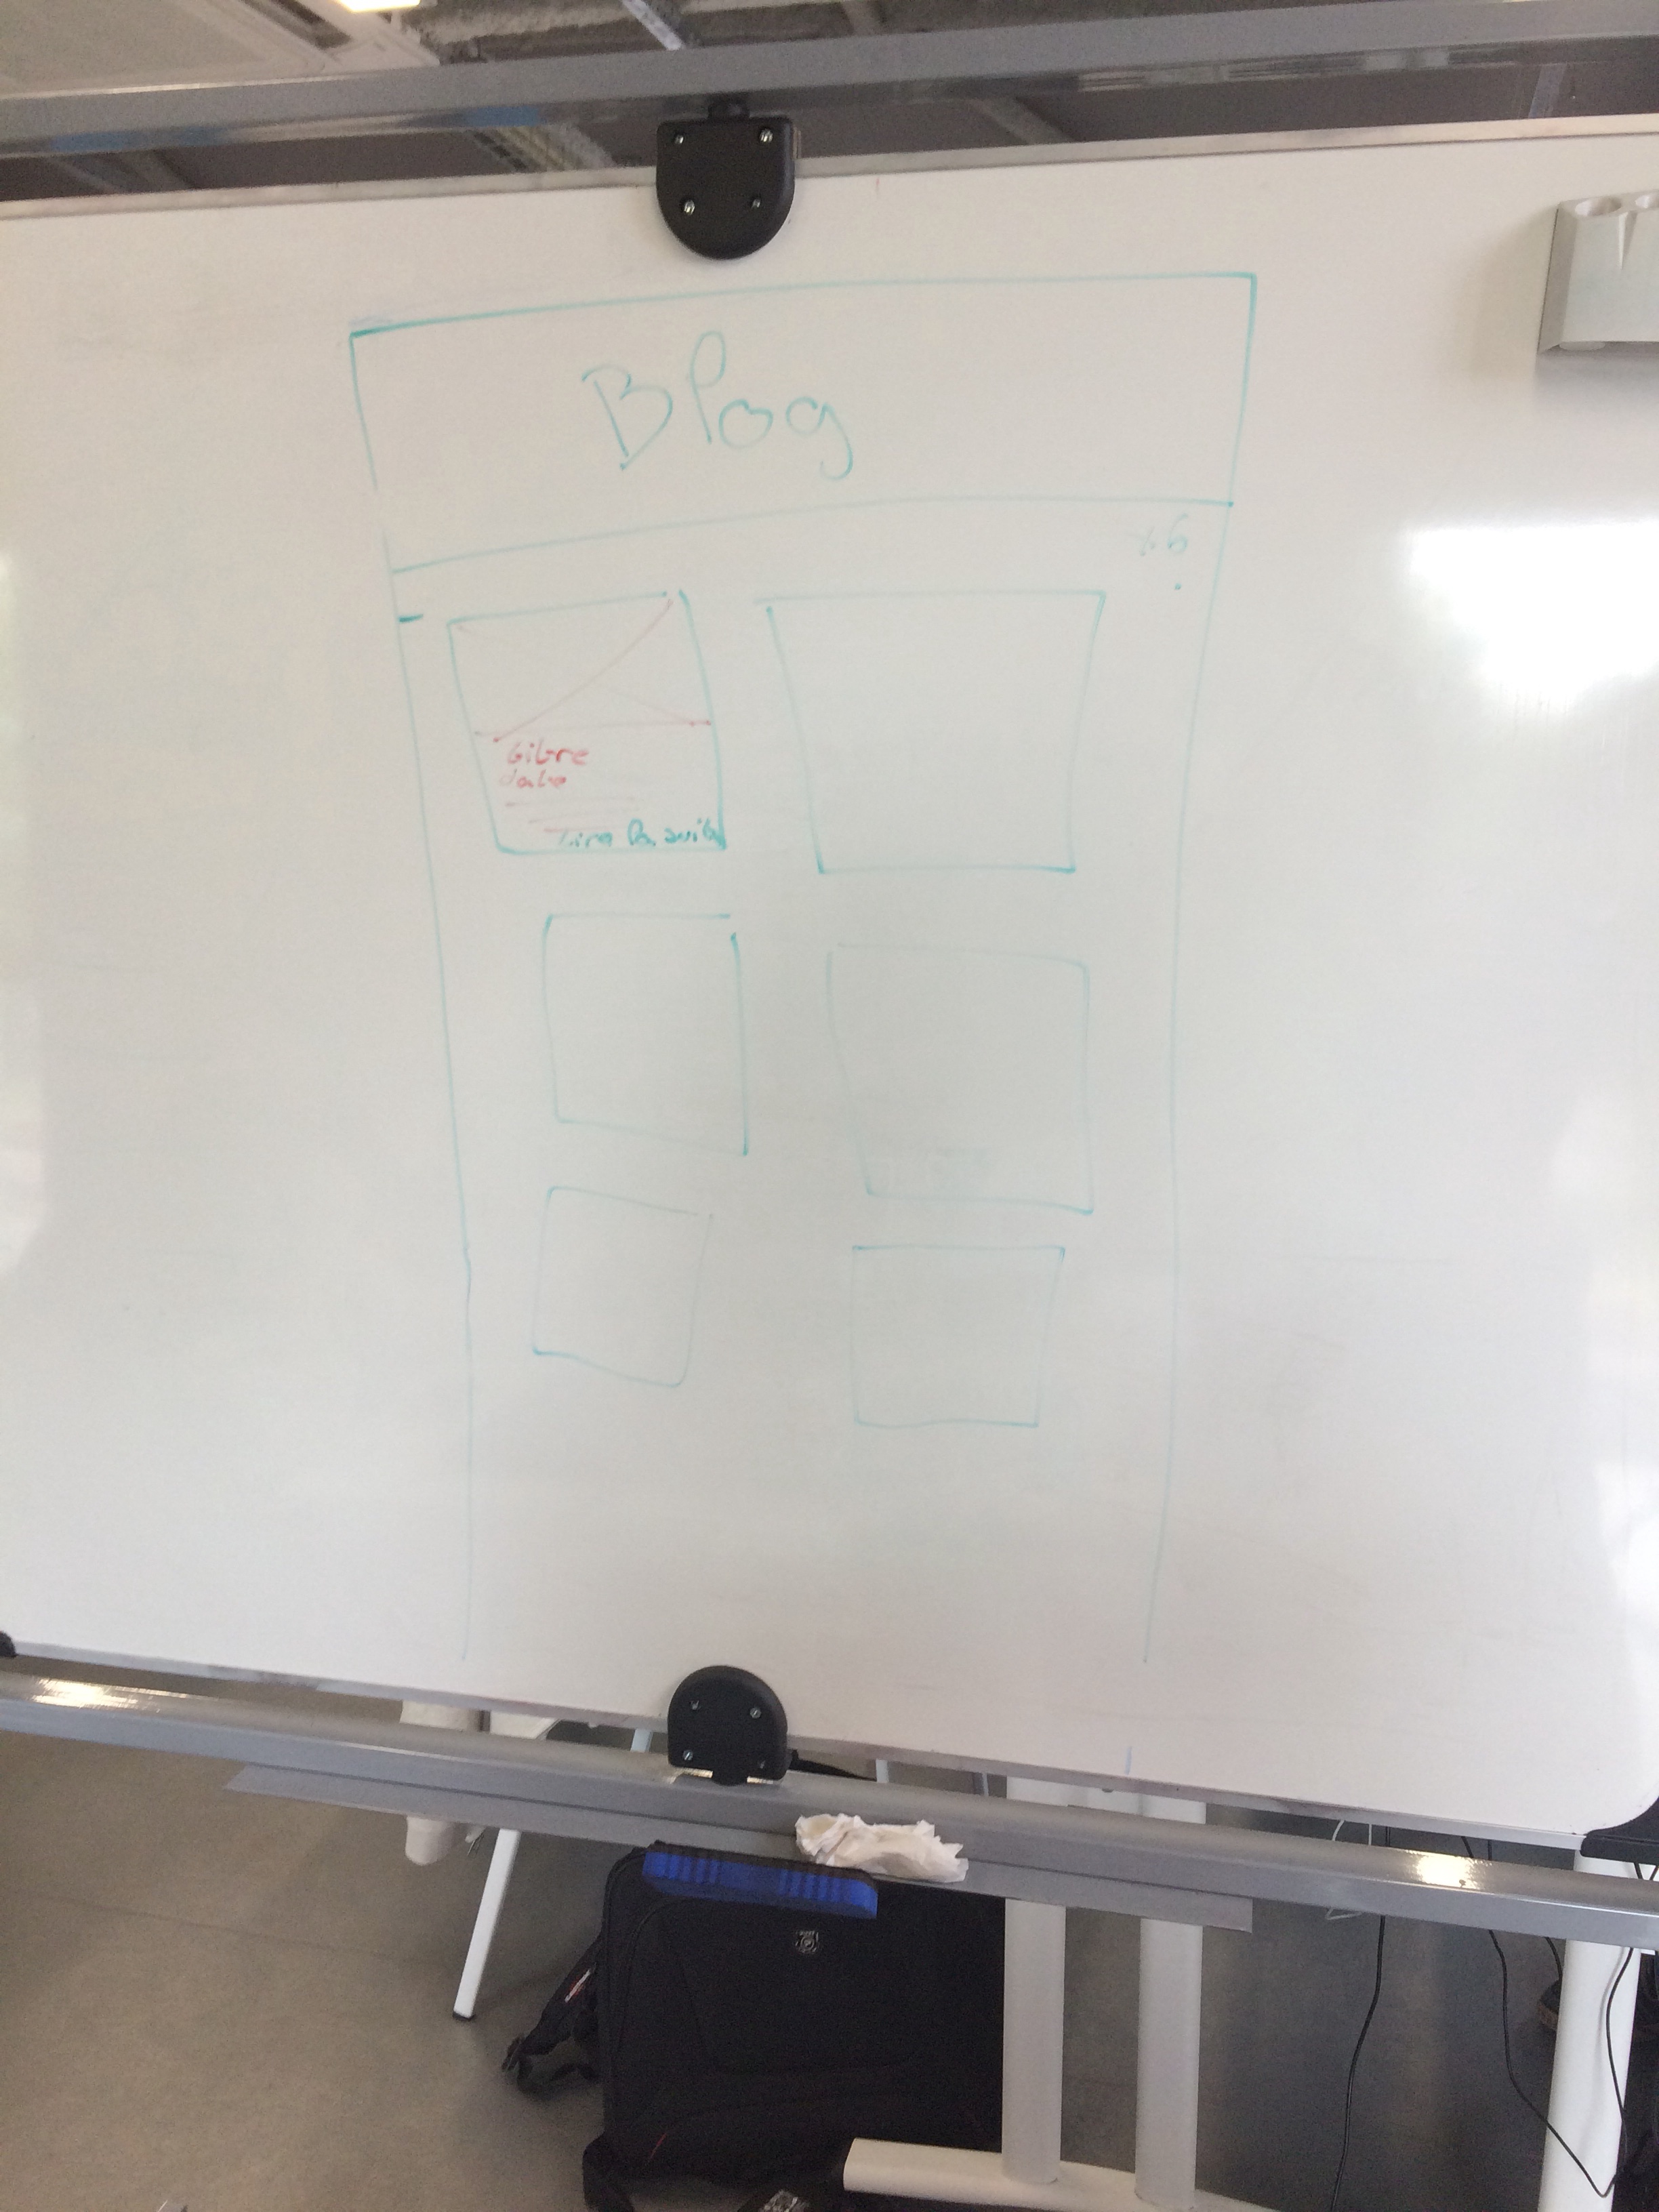 Blog
x6
titre
date
Lire la suite